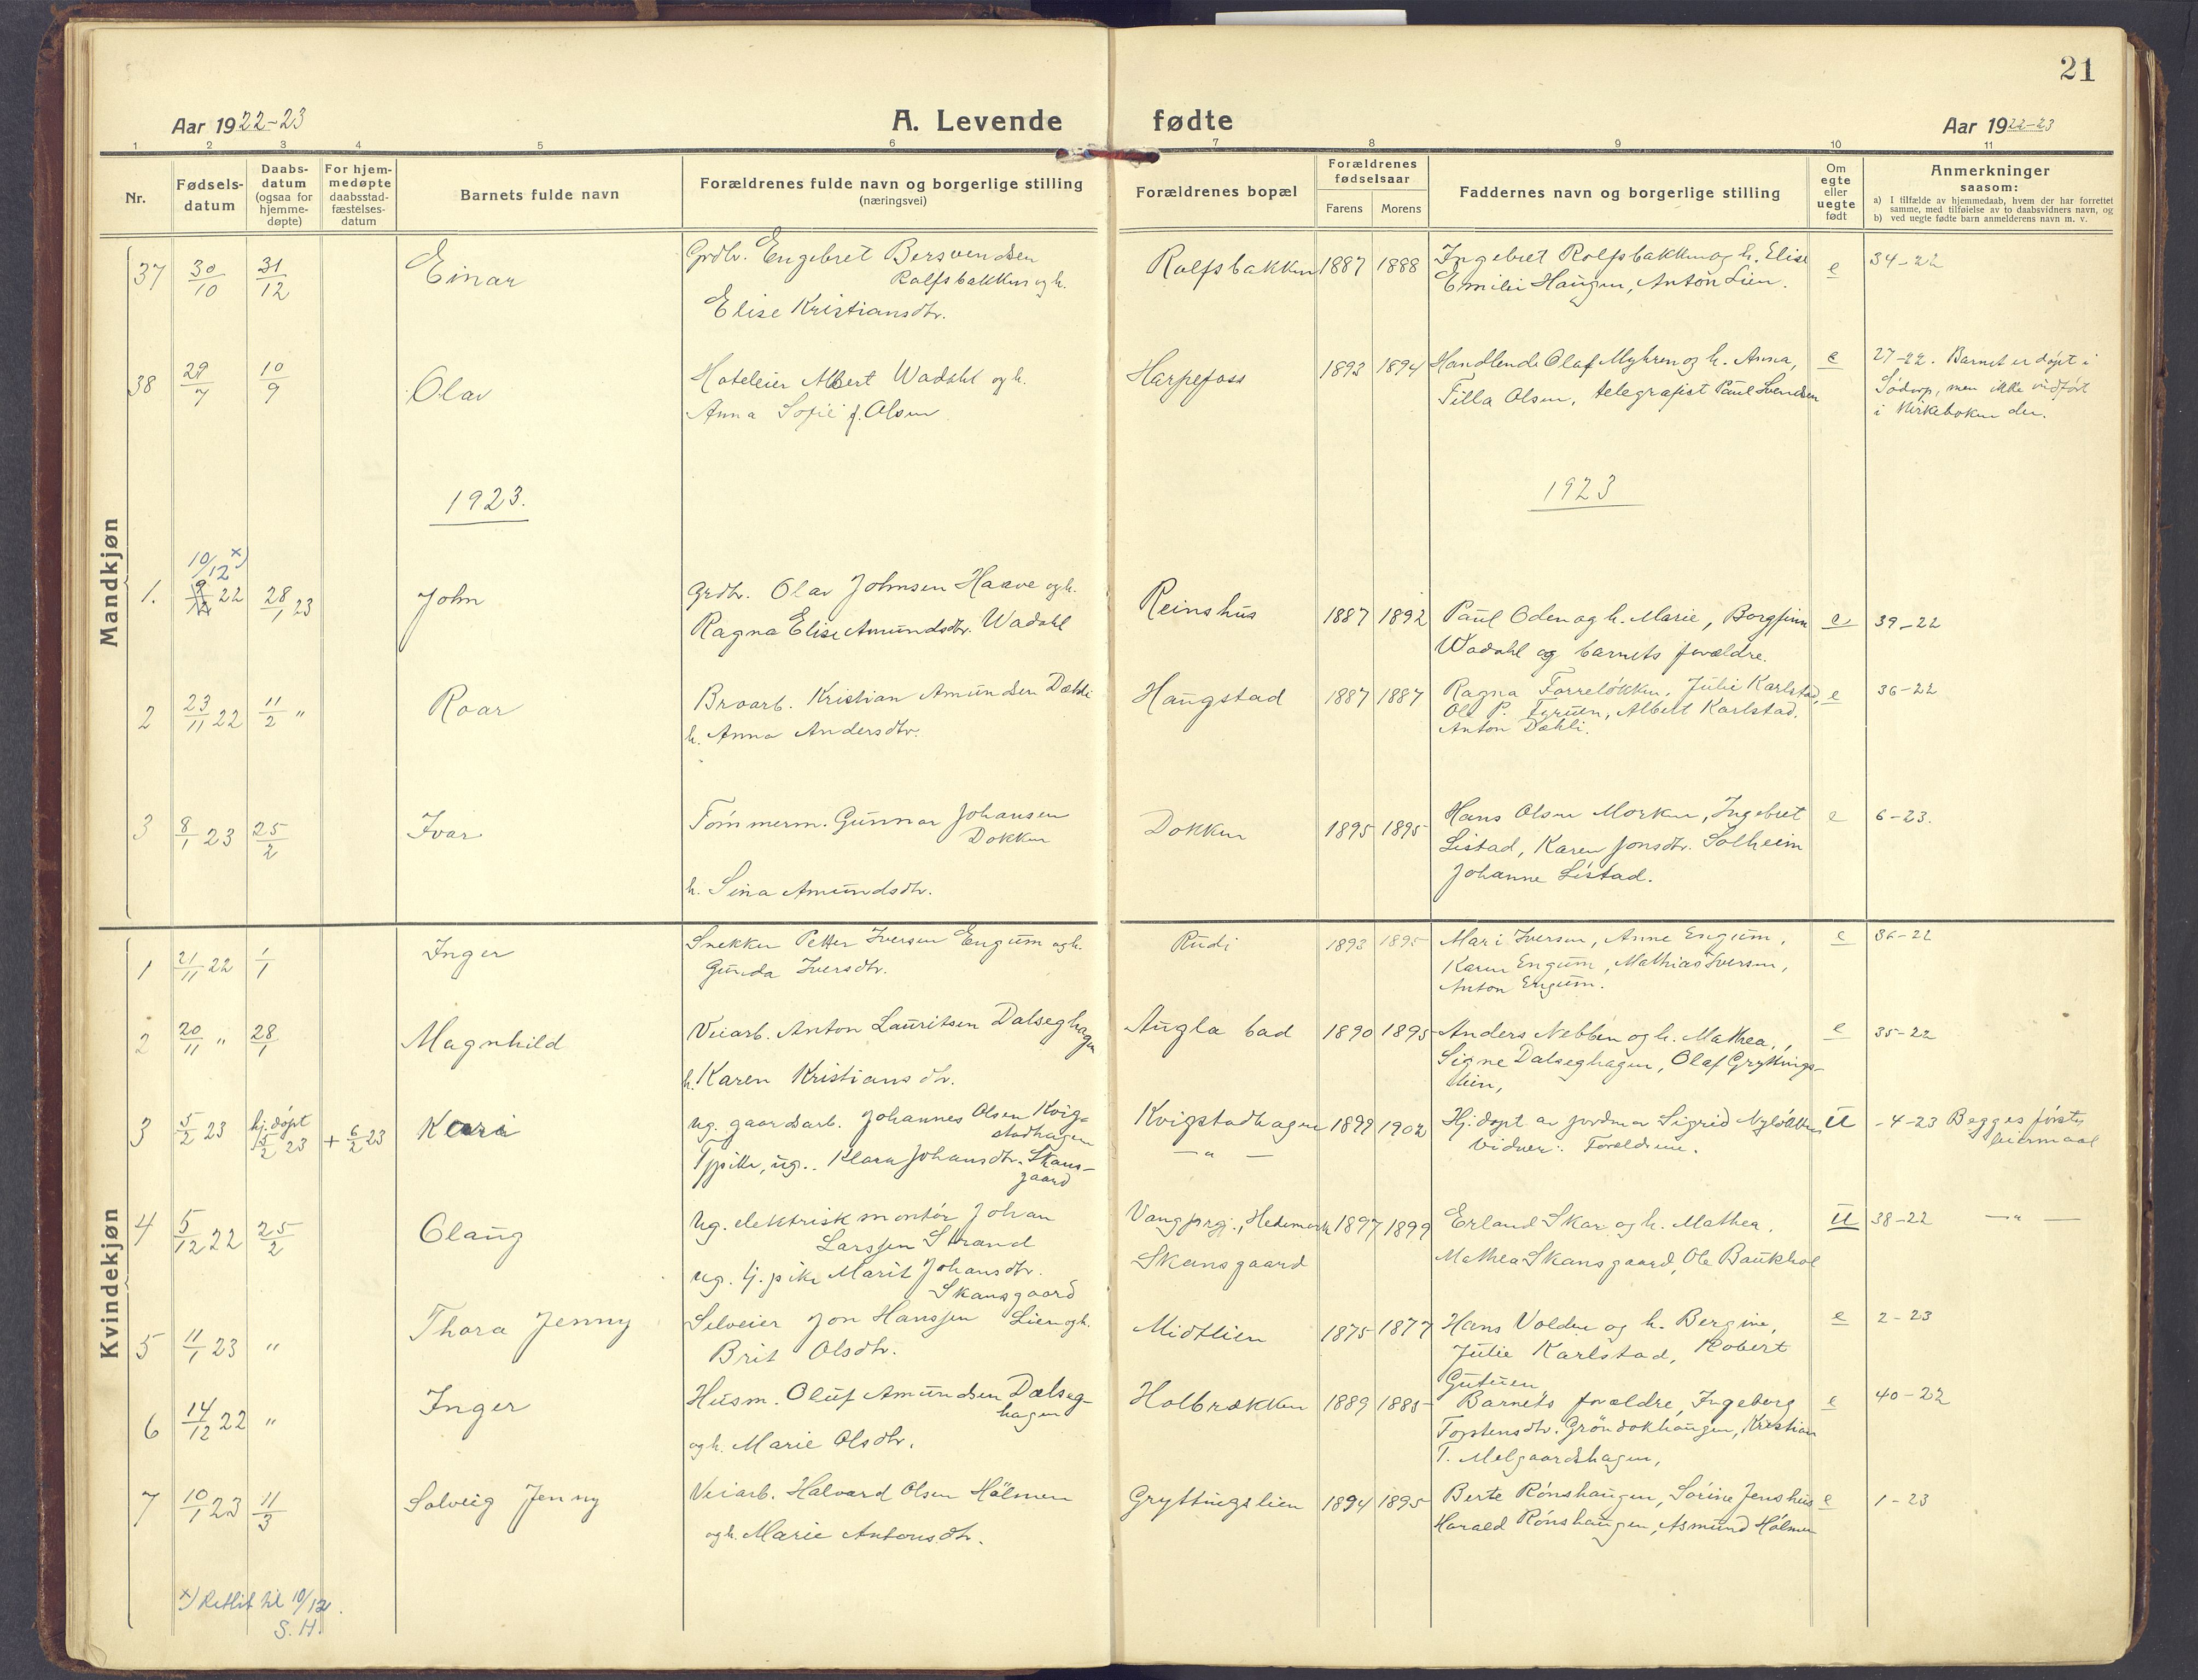 21
Aar 1922-23
A. Levende fødte
Aar 1922-23
1 2 3 4 5 6 7 8 9 10 11
Nr.
Fødsels-
datum
Daabs-
datum
(ogsaa for
hjemme-
døpte)
For hjem-
medøpte
daabsstad-
fæstelses-
datum
Barnets fulde navn
Forældrenes fulde navn og borgerlige stilling
(næringsvei)
Forældrenes bopæl
Forældrenes
fødselsaar
Farens Morens
Faddernes navn og borgerlige stilling
Om
egte
eller
uegte
født
Anmerkninger
saasom:
a) I tilfælde av hjemmedaab, hvem der har forrettet
samme, med tilføielse av to daabsvidners navn, og
b) ved uegte fødte barn anmelderens navn m. v.
Mandkjøn
37 30/10 31/12 Einar
Grdbr. Engebret Bersvendsen
Rolfsbakken og h.
Elise Kristiansdtr.
Rolfsbakken 1887 1888
Ingebret Rolfsbakken og h. Elise
Emilie Haugen, Anton Lien.
e 34-22
38 29/7 10/9 Olav
Hoteleier Albert Wadahl og h.
Anna Sofie f. Olsen
Harpefoss 1893 1894
Handlende Olaf Myhren og h. Anna,
Tilla Olsen, telegrafist Paul Svendsen
e 27-22. Barnet er døpt i
Sødorp, men ikke indført
i kirkeboken der.
1923.
1923
10/12 x)
1. 9/12 22 28/1 23 John
Grdbr. Olav Johnsen Haave og h.
Ragna Elise Amundsdtr. Wadahl
Reinshus 1887 1892
Paul Oden og h. Marie, Borgfinn
Wadahl og barnets forældre.
e 39-22
2 23/11 22 11/2 " Roar
Broarb. Kristian Amundsen Dæhli
h. Anna Andersdtr.
Haugstad 1887 1887
Ragna Forreløkken, Julie Karlstad,
Ole P. Furuen, Albert Karlstad,
Anton Dæhli.
e 36-22
3 8/1 23 25/2 Ivar
Tømmerm. Gunnar Johansen
Dokken
h. Sina Amundsdtr.
Dokken 1895 1895
Hans Olsen Morken, Ingebret
Listad, Karen Jonsdtr. Solheim
Johanne Listad.
e 6-23.
Kvindekjøn
1 21/11 22 1/1 Inger
Snekker Petter Iversen Engum og h.
Gunda Iversdtr.
Rudi 1893 1895
Mari Iversen, Anne Engum,
Karen Engum, Mathias Iversen,
Anton Engum.
e 36-22
2 20/11 " 28/1 Magnhild
Veiarb. Anton Lauritsen Dalseghagen
h. Karen Kristiansdtr.
Augla bad 1890 1895
Anders Nebben og h. Mathea,
Signe Dalseghagen, Olaf Gryttings-
lien,
e 35-22
3 5/2 23 hj. døpt 5/2 23 + 6/2 23 Kari
ug. gaardsarb. Johannes Olsen Kvig-
stadhagen
Tj.pike, ug. Klara Johansdtr. Skans-
gaard
Kvigstadhagen 1899 1902
— " —
Hj. døpt av jordmor Sigrid Nyløkken
Vidner: Forældrene.
u -4-23 Begges første
leiermaal
4 5/12 22 25/2 Olaug
Ug. elektrisk montør Johan
Larssen Strand
ug. tj. pike Marit Johansdtr.
Skansgaard
Vang prgj., Hedemark 1897 1899
Skansgaard
Erland Skar og h. Mathea.
Mathea Skansgaard, Ole Baukhol
u 38-22 — " —
5 11/1 23 " Thora Jenny
Selveier Jon Hanssen Lien og h.
Brit Olsdtr.
Midtlien 1875 1877
Hans Volden og h. Bergine,
Julie Karlstad, Robert
Gutuen
e 2-23
6 14/12 22 " Inger
Husm. Oluf Amundsen Dalseg-
hagen
og h. Marie Olsdtr.
Holbrækken 1889 1885
Barnets forældre, Ingeborg
Torstensdtr. Grøndokhaugen, Kristian
T. Melgaardshagen,
e 40-22
7 10/1 23 11/3 Solveig Jenny
Veiarb. Halvard Olsen Hølmen
og h. Marie Antonsdtr.
Gryttingslien 1894 1895
Berte Rønshaugen, Sørine Jenshus
Harald Rønshaugen, Asmund Hølmen
e 1-23
x) Rettet til 10/12.
S. H.